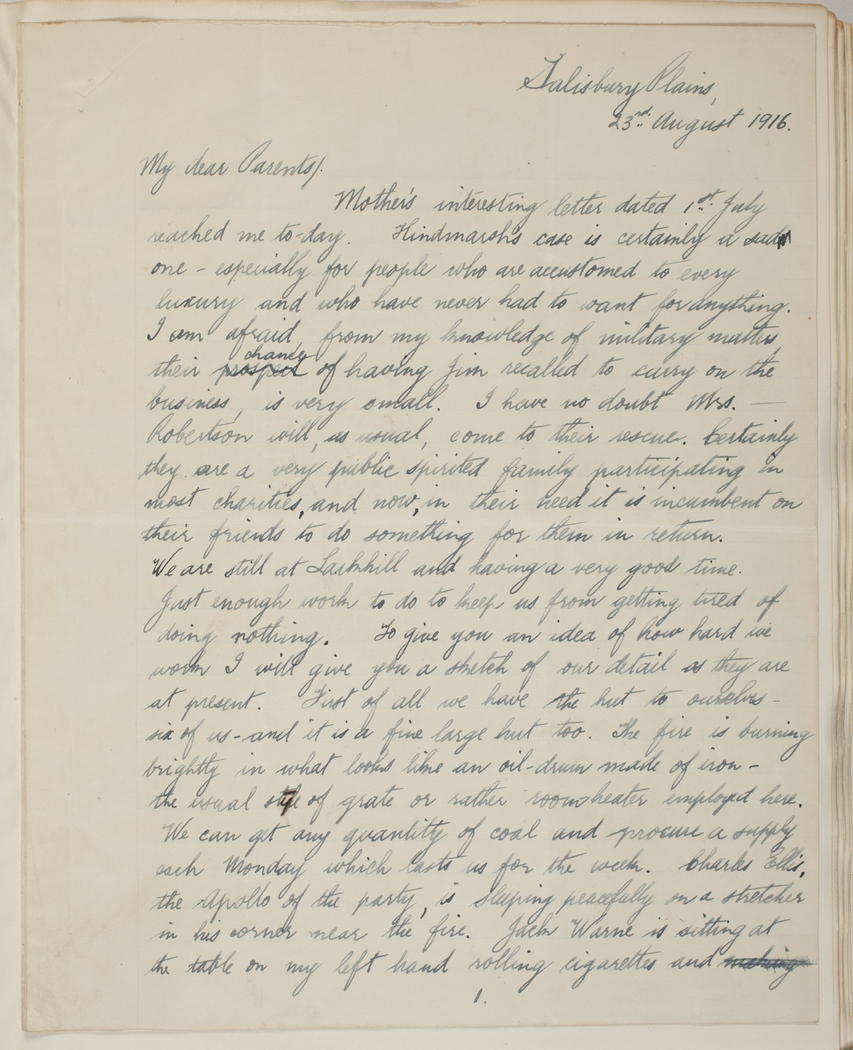 Salisbury Plains,
23rd August 1916.
My dear Parents/.
Mother's interesting letter dated 1st July
reached me to-day. Hindmarsh's case is certainly a sad
one - especially for people who are accustomed to every
luxury and who have never had to want for anything.
I am afraid, from my knowledge of military matters,
chance
their prospect of having Jim recalled to carry on the
business, is very small. I have no doubt Mrs. —
Robertson will, as usual, come to their rescue. Certainly
they are a very public spirited family participating in
most charities, and now, in their need it is incumbent on
their friends to do something for them in return.
We are still at Larkhill and having a very good time.
Just enough work to do to keep us from getting tired of
doing nothing. To give you an idea of how hard we
work I will give you a sketch of our detail as they are
at present. First of all we have the hut to ourselves -
six of us - and it is a fine large hut too. The fire is burning
brightly in what looks like an oil-drum made of iron -
the usual style of grate or rather room-heater employed here.
We can get any quantity of coal and procure a supply
each Monday which lasts us for the week. Charles Ellis,
the Apollo of the party, is sleeping peacefully on a stretcher
in his corner near the fire. Jack Warne is sitting at
the table on my left hand rolling cigarettes and making
1.